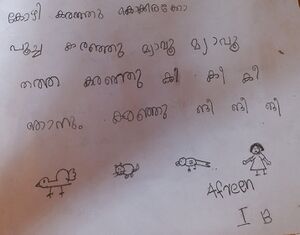 കോഴി കരഞ്ഞു കൊക്കരക്കോ
പൂച്ച കരഞ്ഞു മ്യാവൂ മ്യാവൂ
തത്ത കരഞ്ഞു കീ കീ കീ
ഞാനും കരഞ്ഞു ങീ ങീ ങീ
Afreen
I B